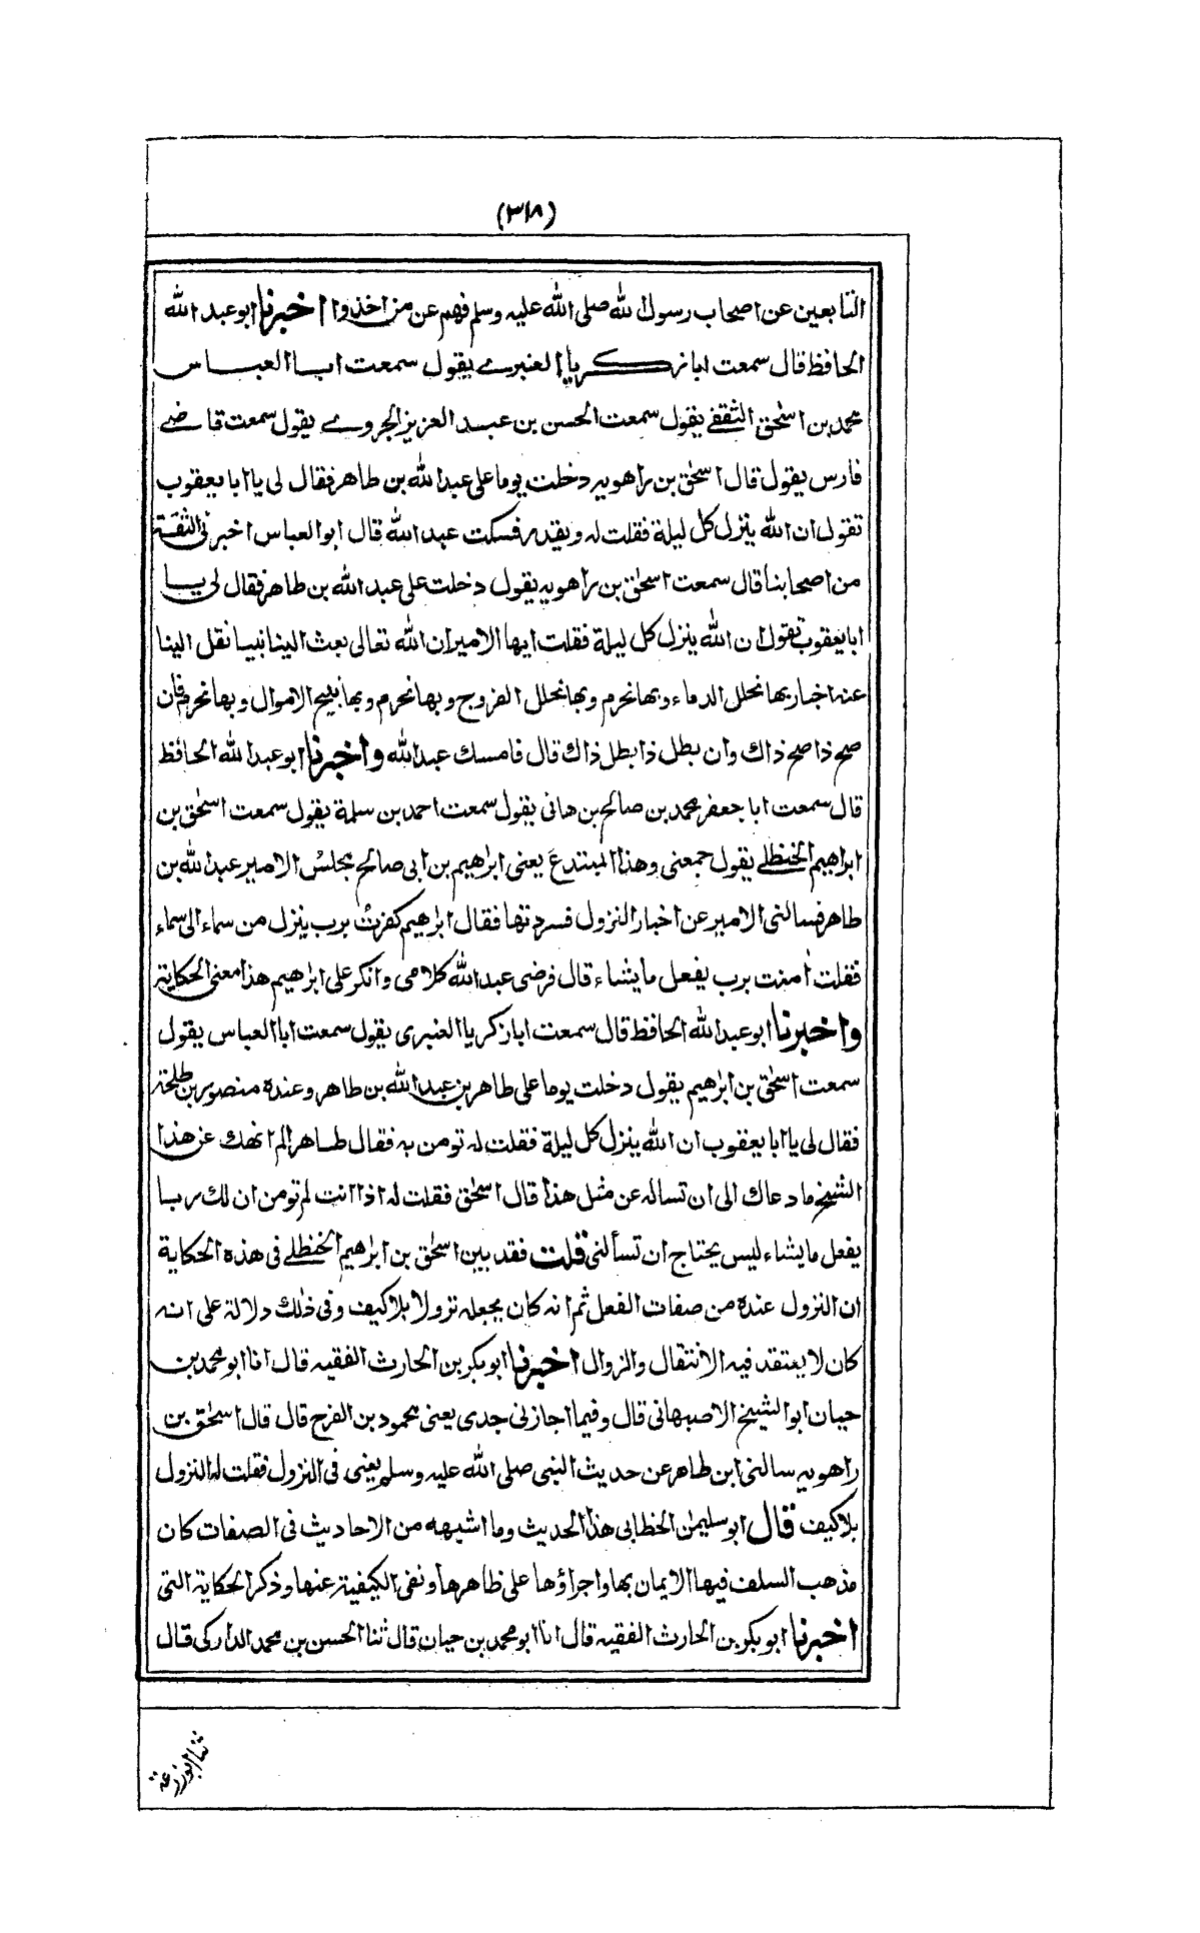 (٣١٨)
التابعين عن اصحاب رسول الله صلى الله عليه وسلم فهم عن من اخذوا اخبرنا ابو عبد الله
الحافظ قال سمعت ابا زكريا العنبرى يقول سمعت ابا العباس
محمد بن اسحٰق الثقفى يقول سمعت الحسن بن عبد العزيز الجروى يقول سمعت قاضى
فارس يقول قال اسحٰق بن راهويه دخلت يوما على عبد الله بن طاهر فقال لى يا ابا يعقوب
تقول ان الله ينزل كل ليلة فقلت له ويقدر فسكت عبد الله قال ابو العباس اخبرنى الثقة
من اصحابنا قال سمعت اسحٰق بن راهويه يقول دخلت على عبد الله بن طاهر فقال لى يا
ابا يعقوب تقول ان الله ينزل كل ليلة فقلت ايها الامير ان الله تعالى بعث الينا نبيا نقل الينا
عنه اخبار بها نحلل الدماء وبها نحرم وبها نحلل الفروج وبها نحرم وبها نبيح الاموال وبها نحرم فان
صح ذا صح ذاك وان بطل ذا بطل ذاك قال فامسك عبد الله واخبرنا ابو عبد الله الحافظ
قال سمعت ابا جعفر محمد بن صالح بن هانى يقول سمعت احمد بن سلمة يقول سمعت اسحٰق بن
ابراهيم الحنظلى يقول جمعنى وهذا المبتدع يعنى ابراهيم بن ابى صالح مجلس الامير عبد الله بن
طاهر فسالنى الامير عن اخبار النزول فسردتها فقال ابراهيم كفرت برب ينزل من سماء الى سماء
فقلت اٰمنت برب يفعل ما يشاء قال فرضى عبد الله كلامى وانكر على ابراهيم هذا معنى الحكاية
واخبرنا ابو عبد الله الحافظ قال سمعت ابا زكريا العنبرى يقول سمعت ابا العباس يقول
سمعت اسحٰق بن ابراهيم يقول دخلت يوما على طاهر بن عبد الله بن طاهر وعنده منصور بن طلحة
فقال لى يا ابا يعقوب ان الله ينزل كل ليلة فقلت له تومن به فقال طاهر الم انهك عن هذا
الشيخ ما دعاك الى ان تساله عن مثل هذا قال اسحٰق فقلت له اذا انت لم تومن ان لك ربا
يفعل ما يشاء ليس يحتاج ان تسألنى قلت فقد بين اسحٰق بن ابراهيم الحنظلى فى هذه الحكاية
ان النزول عنده من صفات الفعل ثم انه كان يجعله نزولا بلا كيف وفى ذلك دلالة على انه
كان لا يعتقد فيه الانتقال والزوال اخبرنا ابو بكر بن الحارث الفقيه قال انا ابو محمد بن
حيان ابو الشيخ الاصبهانى قال وفيما اجازنى جدى يعنى محمود بن الفرج قال قال اسحٰق بن
راهويه سالنى ابن طاهر عن حديث النبى صلى الله عليه وسلم يعنى فى النزول فقلت له النزول
بلا كيف قال ابو سليمٰن الخطابى هذا الحديث وما اشبهه من الاحاديث فى الصفات كان
مذهب السلف فيها الايمان بها واجراؤها على ظاهرها ونفى الكيفية عنها وذكر الحكاية التى
اخبرنا ابو بكر بن الحارث الفقيه قال انا ابو محمد بن حيان قال ثنا الحسن بن محمد الداركى قال
ثنا ابو زرعة